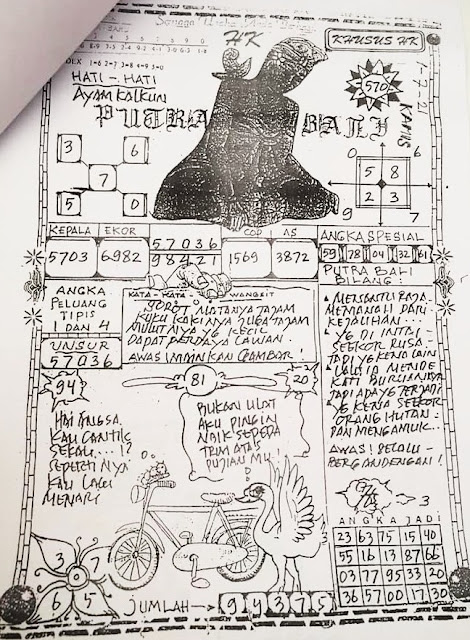 HK
KHUSUS HK
INDEX 1=6 2=7 3=8 4=9 5=0
HATI - HATI
AYAM KALKUN
PUTRA BALI
570
1-7-21
KAMIS
3 6
7
5 0
0 6
5 8
2 3
9 7
KEPALA EKOR
5703 6982
57036
98421
COP AS
1569 3872
ANGKA SPESIAL
59 78 04 32 61
ANGKA
PELUANG
TIPIS
1 DAN 4
UNSUR
57036
KATA - KATA WANGSIT
SOROT MATANYA TAJAM
KUKU KAKINYA JUGA TAJAM
MULUTNYA YG KECIL
DAPAT PERDAYA LAWAN.
AWAS IMAINKAN GAMBAR!
PUTRA BALI
BILANG:
MEMANAH DARI
KEJAUHAN.
YG DI INTAI
SEEKOR RUSA
TADI YG KENA LAIN
LALU IA MENDE
KATI BURUANNYA
YG KENA SEEKOR
ORANG HUTAN.
DAN MENGAMUK..
AWAS! SELALU
BERGANDENGAN!
94
81
20
HAI ANGSA.
KAU CANTIK
SEKALI...!?
SEPERTINYA
KAU LAGI
MENARI
BUKAN ULAT
AKU PINGIN
NAIK SEPEDA
TRIM ATAS
PUJIAN MU!
3
ANGKA JADI
23 63 75 15 40
55 16 13 87 66
03 77 95 33 20
36 57 00 17 30
3 7
6 5
JUMLAH → 94375